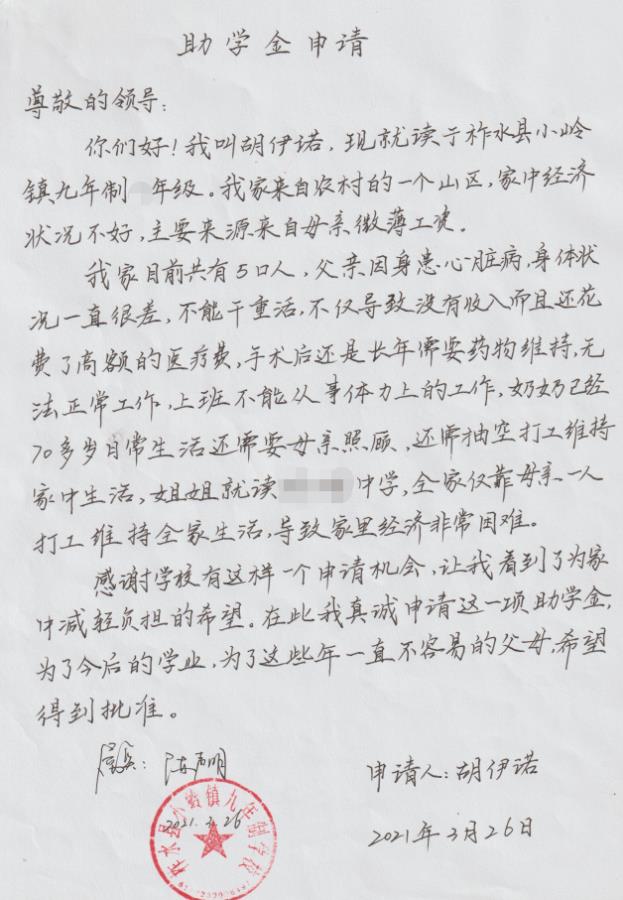 助学金申请
尊敬的领导:
你们好!我叫胡伊诺,现就读于柞水县小岭
镇九年制 年级。我家来自农村的一个山区,家中经济
状况不好,主要来源来自母亲微薄工资。
我家目前共有5口人,父亲因身患心脏病,身体状
况一直很差,不能干重活,不仅导致没有收入而且还花
费了高额的医疗费,手术后还是长年需要药物维持,无
法正常工作,上班不能从事体力上的工作,奶奶已经
70多岁日常生活还需要母亲照顾,还需抽空打工维持
家中生活,姐姐就读 中学,全家仅靠母亲一人
打工维持全家生活,导致家里经济非常困难。
感谢学校有这样一个申请机会,让我看到了为家
中减轻负担的希望。在此我真诚申请这一项助学金,
为了今后的学业,为了这些年一直不容易的父母,希望
得到批准。
申请人:胡伊诺
2021.3.26
柞水县小岭镇九年制学校
2021年3月26日